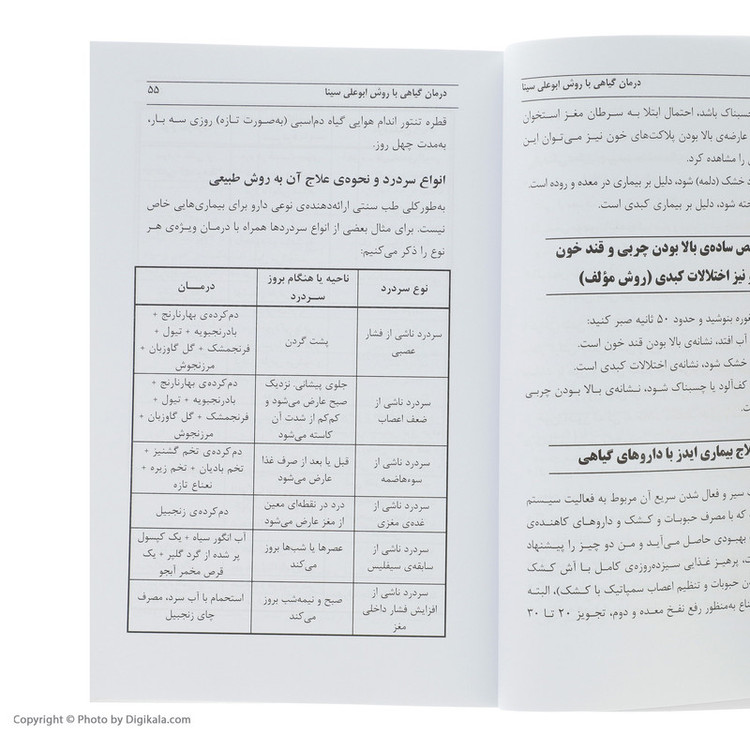 درمان گیاهی با روش ابوعلی سینا
حسبناک باشد، احتمال ابتلا به سرطان مغز استخوان
عارضه‌ی بالا بودن پلاکت‌های خون نیز می‌توان این
را مشاهده کرد.
خشک (دلمه) شود، دلیل بر بیماری در معده و روده است.
شود، دلیل بر بیماری کبدی است.
ساده‌ی بالا بودن چربی و قند خون
نیز اختلالات کبدی (روش مؤلف)
بنوشید و حدود ۵۰ ثانیه صبر کنید:
آب افتد، نشانه‌ی بالا بودن قند خون است.
خشک شود، نشانه‌ی اختلالات کبدی است.
کف‌آلود یا چسبناک شود، نشانه‌ی بالا بودن چربی
بیماری ایدز با داروهای گیاهی
سیر و فعال شدن سریع آن مربوط به فعالیت سیستم
که با مصرف حبوبات و کشک و داروهای کاهنده‌ی
بهبودی حاصل می‌آید و من دو چیز را پیشنهاد
پرهیز غذایی سیزده‌روزه‌ی کامل با آش کشک
حبوبات و تنظیم اعصاب سمپاتیک با کشک)، البته
به‌منظور رفع نفخ معده و دوم، تجویز ۲۰ تا ۳۰
درمان گیاهی با روش ابوعلی سینا ۵۵
قطره تنتور اندام هوایی گیاه دم‌اسبی (به‌صورت تازه) روزی سه بار،
به‌مدت چهل روز.
انواع سردرد و نحوه‌ی علاج آن به روش طبیعی
به‌طورکلی طب سنتی ارائه‌دهنده‌ی نوعی دارو برای بیماری‌هایی خاص
نیست. برای مثال بعضی از انواع سردردها همراه با درمان ویژه‌ی هر
نوع را ذکر می‌کنیم:
نوع سردرد
ناحیه یا هنگام بروز
سردرد
درمان
سردرد ناشی از فشار
عصبی
پشت گردن
دم‌کرده‌ی بهارنارنج +
بادرنجبویه + تیول +
فرنجمشک + گل گاوزبان +
مرزنجوش
سردرد ناشی از
ضعف اعصاب
جلوی پیشانی. نزدیک
صبح عارض می‌شود و
کم‌کم از شدت آن
کاسته می‌شود
دم‌کرده‌ی بهارنارنج +
بادرنجبویه + تیول +
فرنجمشک + گل گاوزبان +
مرزنجوش
سردرد ناشی از
سوءهاضمه
قبل یا بعد از صرف غذا
عارض می‌شود
دم‌کرده‌ی تخم گشنیز +
تخم بادیان + تخم زیره +
نعناع تازه
سردرد ناشی از
غده‌ی مغزی
درد در نقطه‌ای معین
از مغز عارض می‌شود
دم‌کرده‌ی زنجبیل
سردرد ناشی از
سابقه‌ی سیفلیس
عصرها یا شب‌ها بروز
می‌کند
آب انگور سیاه + یک کپسول
پر شده از گرد گلپر + یک
قرص مخمر آبجو
سردرد ناشی از
افزایش فشار داخلی
مغز
صبح و نیمه‌شب بروز
می‌کند
استحمام با آب سرد، مصرف
چای زنجبیل
Copyright © Photo by Digikala.com